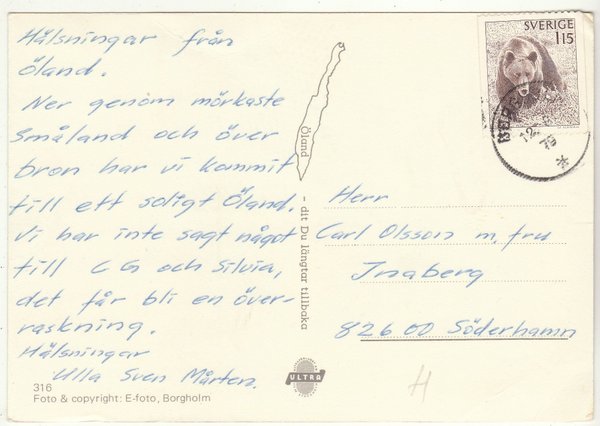 Hälsningar från
Öland.
Ner genom mörkaste
Småland och över
bron har vi kommit
till ett soligt Öland.
Vi har inte sagt något
till CG och Silvia,
det får bli en över-
raskning.
Hälsningar
Ulla Sven Mårten.
316
Foto & copyright: E-foto, Borgholm
Öland
- dit Du längtar tillbaka
ULTRA
SVERIGE
115
Herr
Carl Olsson m. fru
Inaberg
826 00 Söderhamn
H